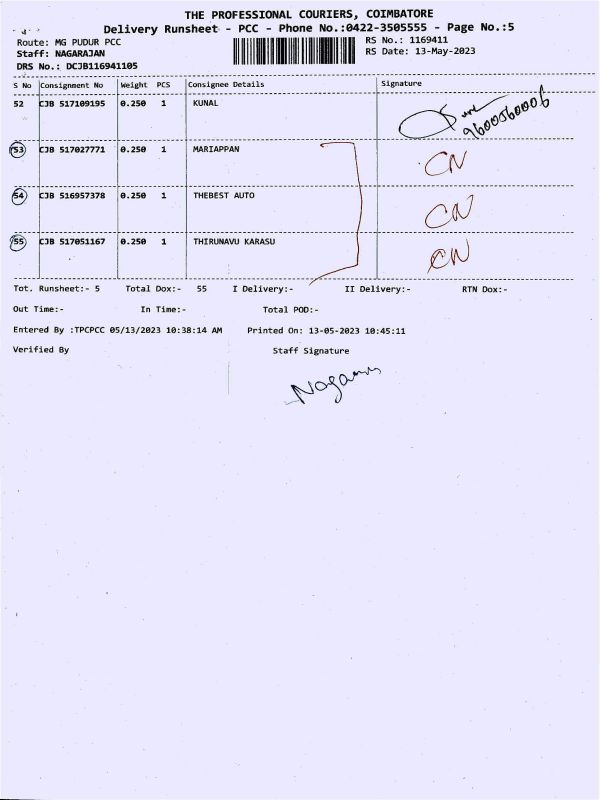 THE PROFESSIONAL COURIERS, COIMBATORE
Delivery Runsheet - PCC - Phone No.:0422-3505555 - Page No.:5
Route: MG PUDUR PCC RS No.: 1169411
Staff: NAGARAJAN RS Date: 13-May-2023
DRS No.: DCJB116941105
S No Consignment No Weight PCS Consignee Details Signature
52 CJB 517109195 0.250 1 KUNAL 9600560006
53 CJB 517027771 0.250 1 MARIAPPAN CN
54 CJB 516957378 0.250 1 THEBEST AUTO CN
55 CJB 517051167 0.250 1 THIRUNAVU KARASU CN
Tot. Runsheet:- 5 Total Dox:- 55 I Delivery:- II Delivery:- RTN Dox:-
Out Time:- In Time:- Total POD:-
Entered By :TPCPCC 05/13/2023 10:38:14 AM Printed On: 13-05-2023 10:45:11
Verified By Staff Signature